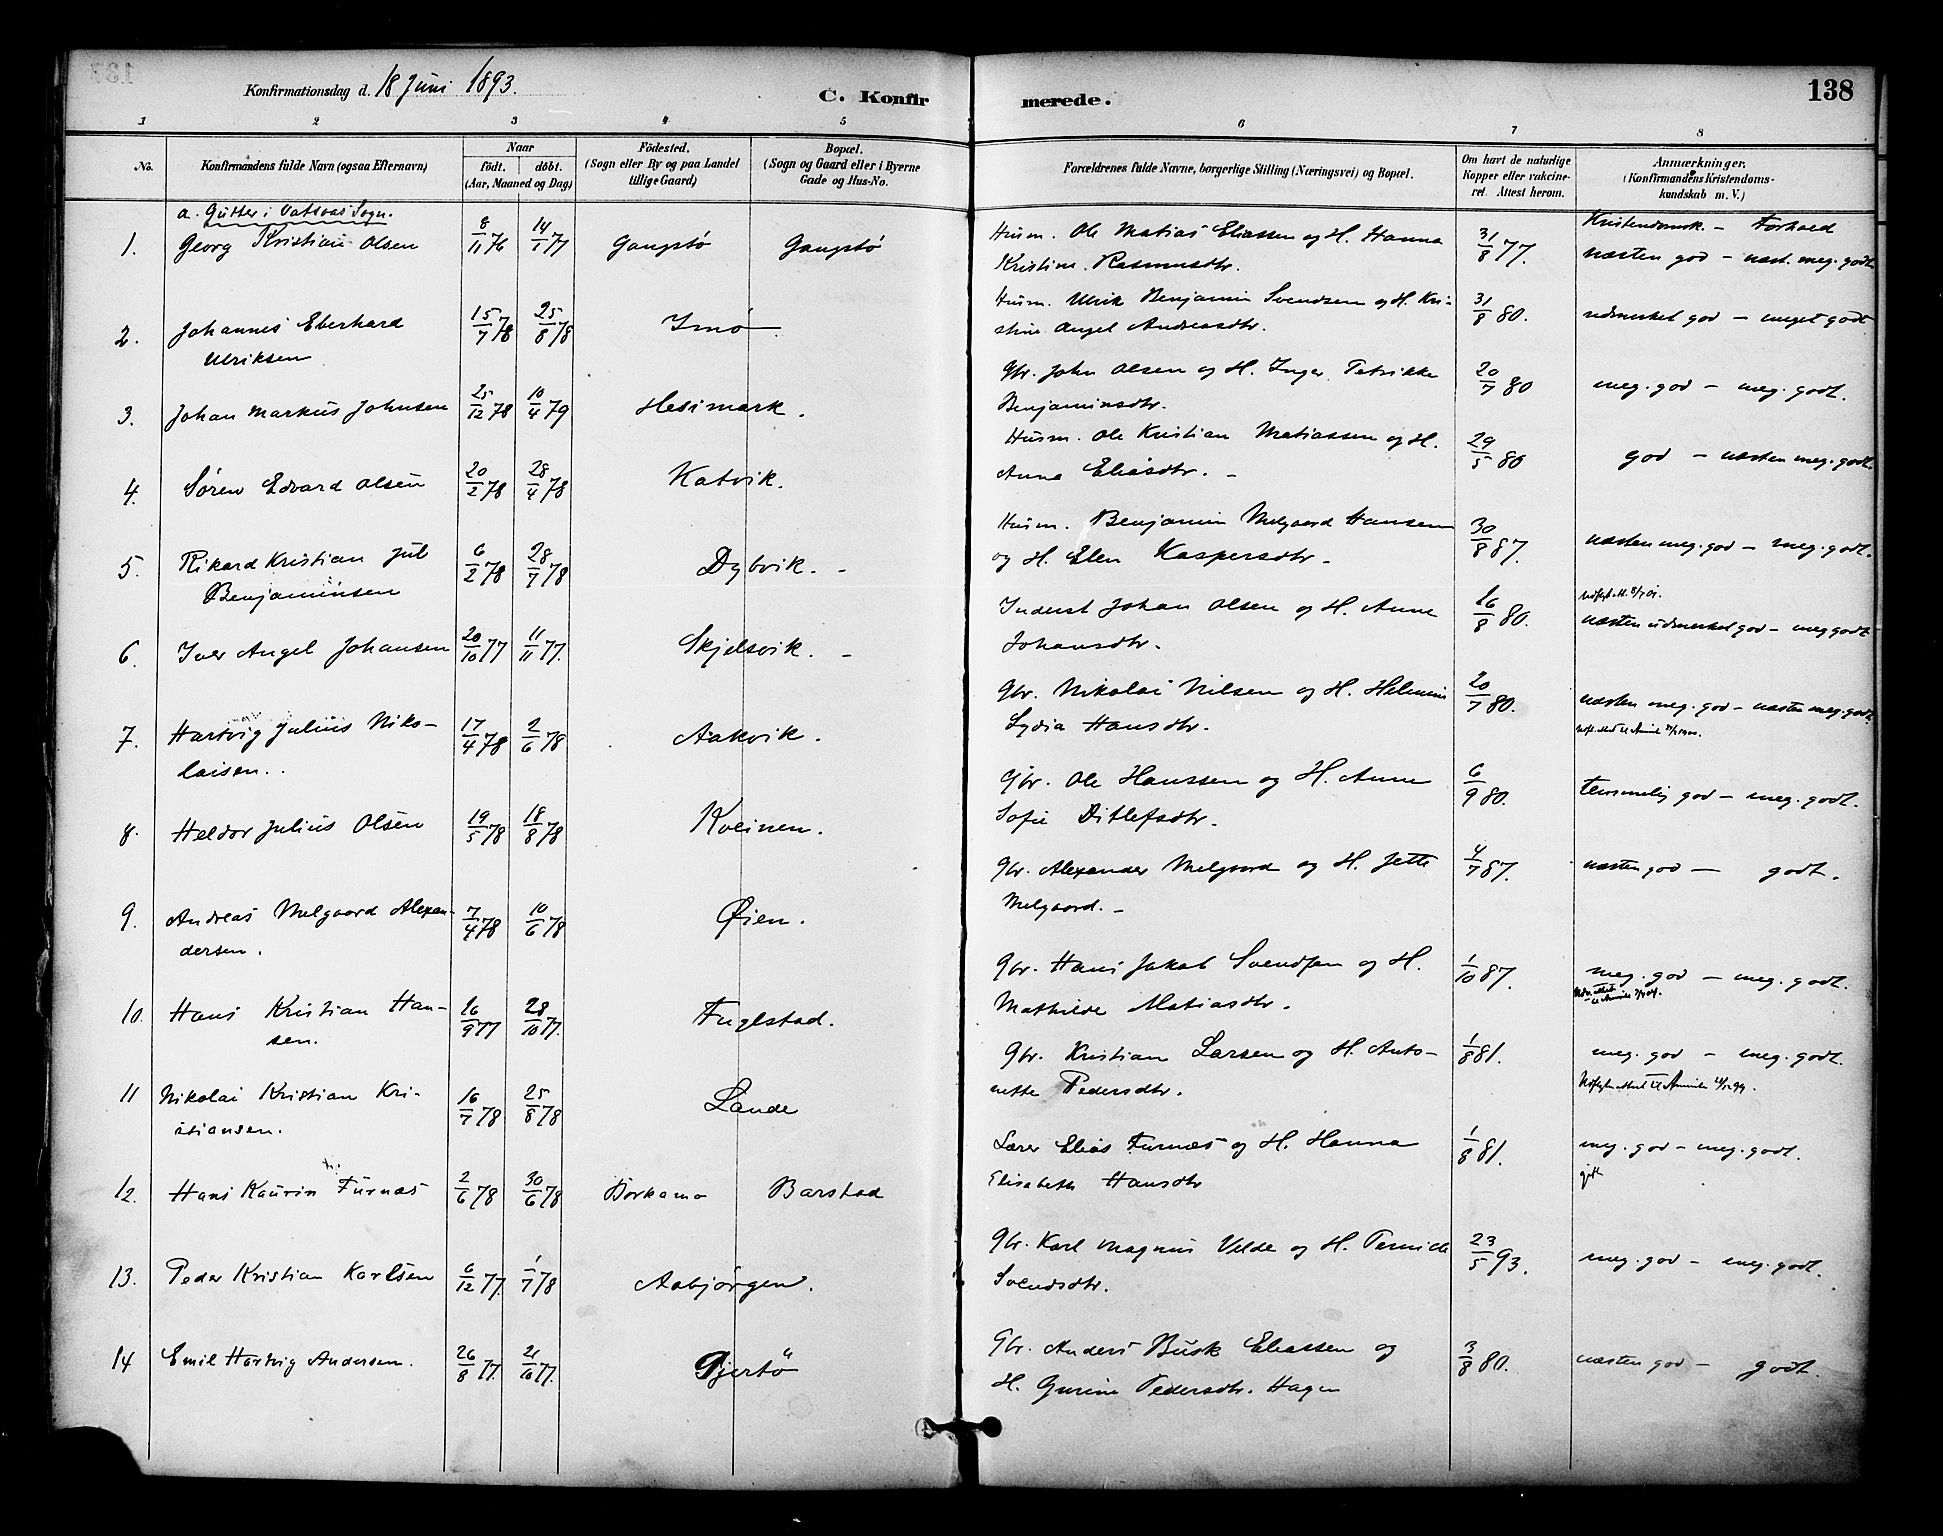 Konfirmationsdag d. 18 Juni 1893.
C. Konfirmerede.
138
1 2 3 4 5 6 7 8
No.
Konfirmandens fulde Navn (ogsaa Efternavn)
Naar
födt. döbt.
(Aar, Maaned og Dag)
Födested.
(Sogn eller By og paa Landet
tillige Gaard)
Bopæl.
(Sogn og Gaard eller i Byerne
Gade og Hus-No.
Forældrenes fulde Navne, borgerlige Stilling (Næringsvei) og Bopæl.
Om havt de naturlige
Kopper eller vakcine-
ret. Attest herom.
Anmærkninger,
(Konfirmandens Kristendoms-
kundskab m. V.)
a. Gutter i Vatsvas Sogn.
Kristendomsk. – Forhold
1. Georg Kristian Olsen 8/11 76 14/1 77 Gangstø Gangstø Husm. Ole Matias Eliassen og H. Hanna
Kristine Rasmusdtr. 31/8 77. næsten god – næst. meg. godt
2. Johannes Eberhard 15/7 78 25/8 78 Imø Husm. Ulrik Benjamin Svendsen og H. Kri-
Ulriksen stine Angel Andreasdtr. 31/8 80. udmerket god – meget godt
3. Johan Markus Johnsen 25/12 78 10/4 79 Hesimark. Gbr. John Olsen og H. Inger Petrikke
Benjaminsdtr. 20/7 80 meg. god – meg. godt.
4. Søren Edvard Olsen 20/2 78 28/4 78 Katvik. Husm. Ole Kristian Matiassen og H.
Anna Eliasdtr. – 29/5 80 god – næsten meg. godt.
5. Rikard Kristian Jul 6/2 78 28/7 78 Dybvik. – Husm. Benjamin Melgaard Hansen
Benjaminsen og H. Elen Kaspersdtr – 30/8 87. næsten meg. god – meg. godt.
6. Iver Angel Johansen 20/10 77 11/11 77. Skjelsvik. – Inderst Johan Olsen og H. Anne
Johansdtr. 16/8 80. næsten udmerket god – meg godt
7. Hartvig Julius Niko- 17/4 78 2/6 78 Aakvik. Gbr. Nikolai Nilsen og H. Helmine
laisen. Lydia Hansdtr. 20/7 80. næsten meg. god – næsten meg. godt
8. Heldor Julius Olsen 19/5 78 18/8 78 Kveinen. Gbr. Ole Hanssen og H. Anne
Sofie Ditlefsdtr. 6/9 80. temmelig god – meg. godt.
9. Andreas Melgaard Alexan- 7/4 78 10/6 78 Øien. Gbr. Alexander Melgaard og H. Jette
dersen. Melgaard. – 4/7 87. næsten god – godt.
10. Hans Kristian Han- 16/9 77 28/10 77. Fuglstad. Gbr. Hans Jakob Svendsen og H.
sen. Mathilde Matiasdtr. 1/10 87. meg. god – meg. godt.
11 Nikolai Kristian Kri- 16/7 78 25/8 78 Lande Gbr. Kristian Larsen og H. Anto-
stiansen. nette Pedersdtr. 1/8 81. meg. god – meg. godt.
12. Hans Kaurin Furnæs 2/6 78 30/6 78 Borkamo Barstad Lærer Elias Furnæs og H. Hanna
Elisabeth Hansdtr 1/8 81. meg. god – meg. godt.
13. Peder Kristian Karlsen 6/12 77. 1/7 78 Aabjørgen. Gbr. Karl Magnus Velde og H. Pernille
Svendsdtr. 23/5 93. meg. god – meg. godt.
14 Emil Hartvig Andersen. 26/8 77. 21/10 77. Gjertö Gbr. Anders Busk Eliassen og
H. Gurine Pedersdtr. Hagen 3/8 80. næsten god – godt.